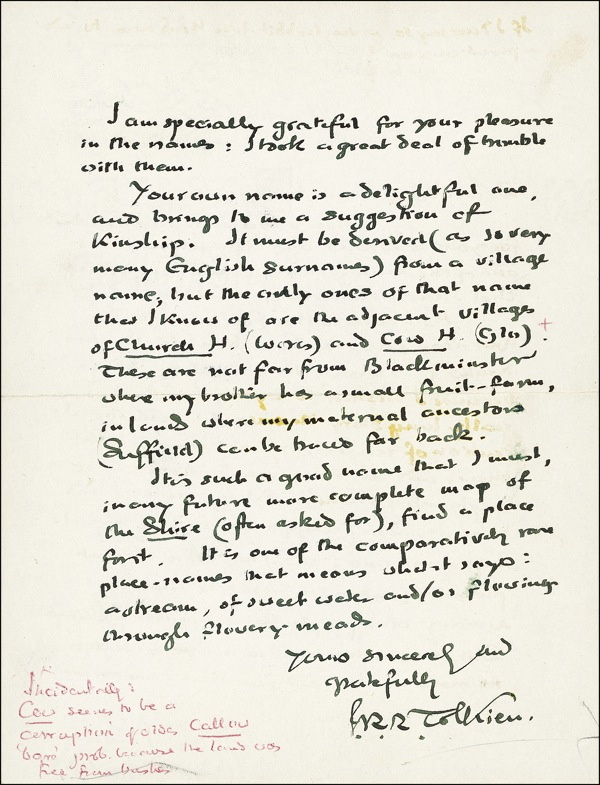 I am specially grateful for your pleasure
in the names: I took a great deal of trouble
with them.
Your own name is a delightful one,
and brings to me a suggestion of
kinship. It must be derived (as so very
many English surnames) from a village
name, but the only ones of that name
that I know of are the adjacent villages
of Church H. (Worcs) and Cow H. (Glos) +.
These are not far from Blackminster
where my brother has a small fruit-farm,
in land where my maternal ancestors
(Suffield) can be traced far back.
It is such a good name that I must,
in any future more complete map of
the Shire (often asked for), find a place
for it. It is one of the comparatively rare
place-names that means what it says:
a stream, of sweet water and/or flowing
through flowery meads.
Yours sincerely and
gratefully
J.R.R. Tolkien.
+
Incidentally:
Cow seems to be a
corruption of older Callow
'bare' prob. because the land was
free from bushes